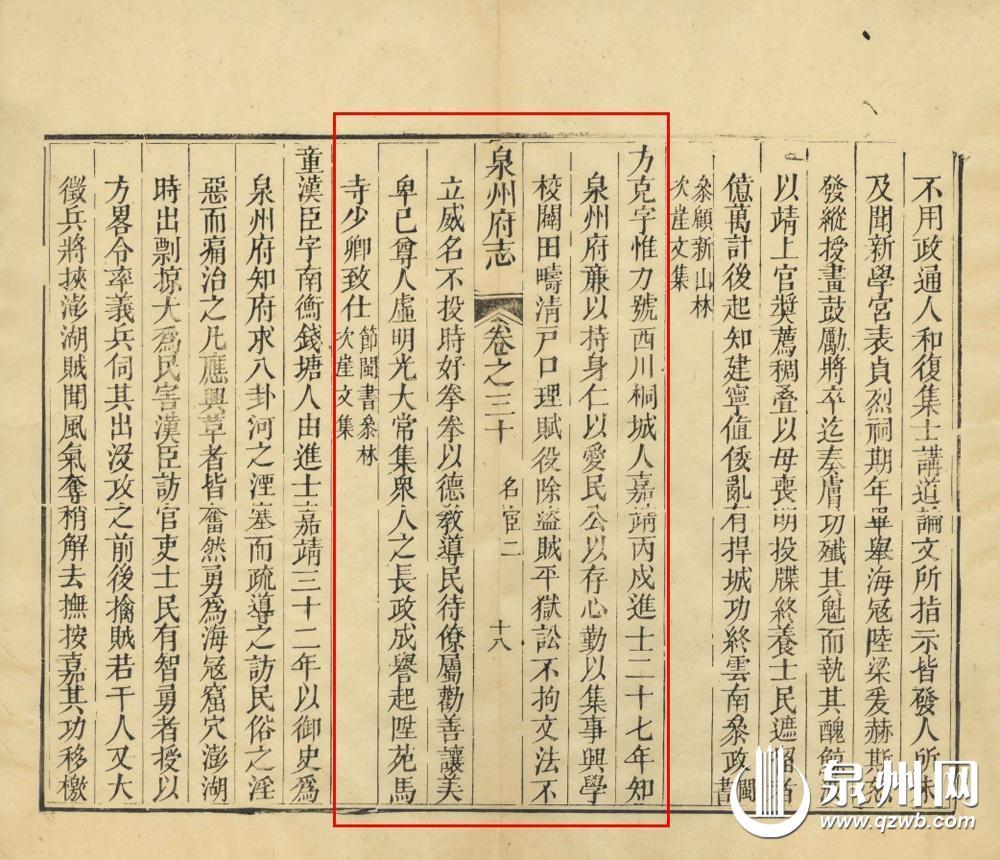 不用政通人和復集士講道論文所指示皆發人所未
及聞新學宮表貞烈祠期年畢舉海冦陸梁爰赫斯怒
發縱授畫鼓勵將卒迄奏膚功殲其魁而執其醜鯨
以靖上官奬薦稠疊以母喪明投牒終養士民遮留者
億萬計後起知建寧值倭亂有捍城功終雲南叅政閩書
叅顧新山林
次崖文集
方克字惟力號西川桐城人嘉靖丙戌進士二十七年知
泉州府亷以持身仁以愛民公以存心勤以集事興學
校闢田疇清戸口理賦役除盜賊平獄訟不拘文法不
泉州府志
卷之三十
名宦二
十八
立威名不投時好拳拳以德教導民待僚屬勸善讓美
卑已尊人虛明光大常集衆人之長政成譽起陞苑馬
寺少卿致仕節閩書叅林
次崖文集
童漢臣字南衡錢塘人由進士嘉靖三十二年以御史爲
泉州府知府求八卦河之湮塞而疏導之訪民俗之淫
惡而痛治之凡應興革者皆奮然勇爲海冦窟穴澎湖
時出剽掠大爲民害漢臣訪官吏士民有智勇者授以
方畧令率義兵伺其出沒攻之前後擒賊若干人又大
徵兵將挾澎湖賊聞風氣奪稍解去撫按嘉其功移檄
泉州网
www.qzwb.com